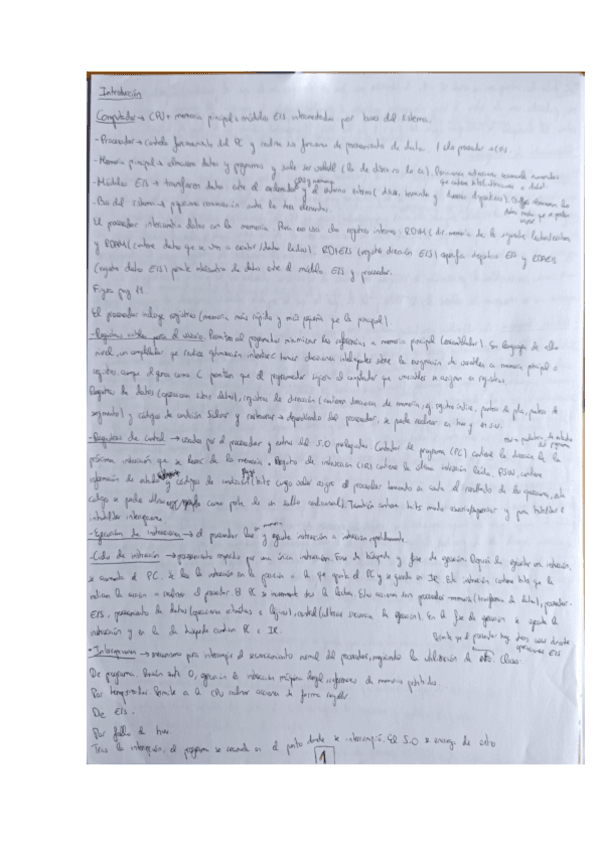 Introducción
Computador → CPU + memoria principal + módulos E/S interconectados por buses del sistema.
- Procesador → controla funcionamiento del PC y realiza sus funciones de procesamiento de datos. 1 solo procesador → CPU.
- Memoria principal → almacena datos y programas y suele ser volátil
- Módulos E/S → transfieren datos entre el ordenador y el entorno externo (discos, terminales y demás dispositivos).
- Bus del sistema → proporciona comunicación entre los tres elementos.
El procesador intercambia datos con la memoria. Para eso usa dos registros internos. RDIM (dir memoria de la siguiente lectura/escritura
y RDAM (contiene datos que se van a escribir/datos leídos). RDIE/S (registro dirección E/S) especifica dispositivo E/S y RDAE/S
(registro datos E/S) permite intercambio de datos entre el módulo E/S y procesador.
Figura pag 11
El procesador incluye registros (memoria más rápida y más pequeña que la principal)
- Registros visibles para el usuario. Permiten al programador minimizar las referencias a memoria principal (ensamblador). En lenguajes de alto
nivel, un compilador que realice optimización intentará tomar decisiones inteligentes sobre la asignación de variables a memoria principal o
registros, aunque algunos como C permiten que el programador sugiera al compilador que variables se asignen en registros.
Registros de datos (operaciones sobre datos), registros de dirección (contienen direcciones de memoria, ej. registro índice, puntero de pila, puntero de
segmento) y códigos de condición. Salvar y restaurar → dependiendo del procesador, se puede realizar en hw y en sw.
- Registros de control → usados por el procesador y rutinas del S.O privilegiadas. Contador de programa (PC) contiene la dirección de la
próxima instrucción que se leerá de la memoria. Registro de instrucción (IR) contiene la última instrucción leída. PSW, contiene
información de estado y códigos de condición (bits cuyo valor asigna el procesador teniendo en cuenta el resultado de las operaciones, este
código se puede como parte de un salto condicional). También contiene bits modo usuario/supervisor y para habilitar e
inhabilitar interrupciones.
- Ejecución de instrucciones → el procesador lee y ejecuta instrucción a instrucción repetidamente.
- Ciclo de instrucción → procesamiento requerido por una única instrucción. Fase de búsqueda y fase de ejecución. Después de ejecutar una instrucción,
se aumenta el PC. Se lee la instrucción en la posición a la que apunta el PC y se guarda en IR. Esta instrucción contiene bits que le
indican la acción a realizar al procesador. El PC se incrementa tras la lectura. Estas acciones son procesador-memoria (transferencia de datos), procesador-
E/S, procesamiento de datos (operaciones aritméticas o lógicas), control (altera secuencia de ejecución). En la fase de ejecución se ejecuta la
instrucción y en la de búsqueda cambian PC e IR.
- Interrupciones → mecanismo para interrumpir el secuenciamiento normal del procesador, mejorando la utilización de este. Clases:
De programa. División entre 0, ejecución de instrucción máquina ilegal, referencias de memoria prohibidas.
Por temporizador. Permite a la CPU realizar acciones de forma regular
De E/S.
Por fallo de hw.
Tras la interrupción, el programa se reanuda en el punto donde se interrumpió. El S.O se encarga de esto
1